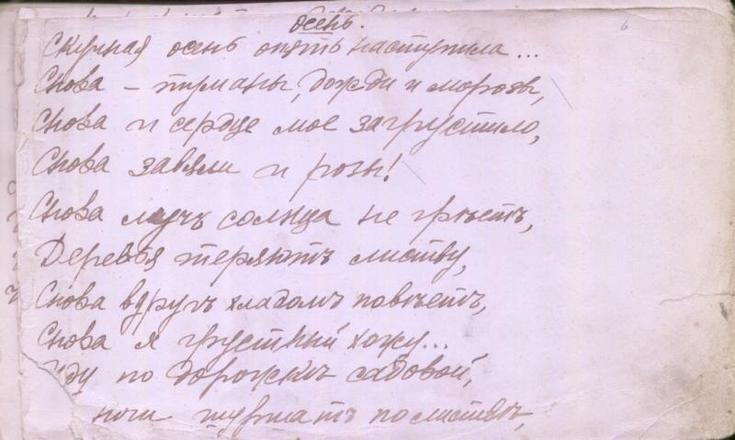 Осень.
Скучная осень опять наступила...
Снова – туманы, дожди и морозы,
Снова и сердце мое загрустило,
Снова завяли и розы!
Снова лучъ солнца не грѣетъ,
Деревья теряютъ листву,
Снова вдругъ хладомъ повѣетъ,
Снова я грустный хожу...
Иду по дорожкѣ садовой,
ноги шуршатъ по листьямъ,